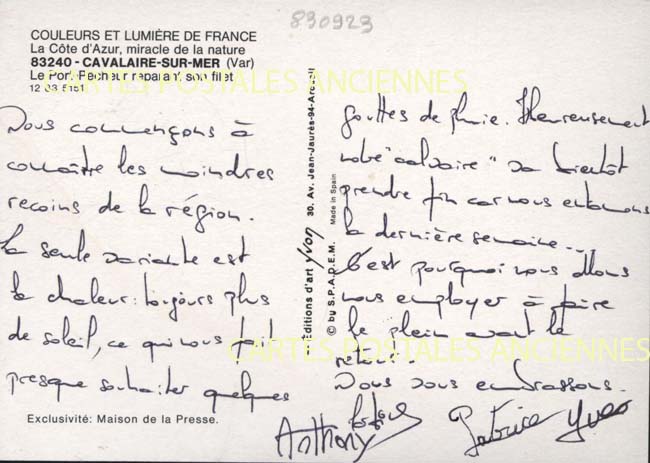 830923
COULEURS ET LUMIÈRE DE FRANCE
La Côte d'Azur, miracle de la nature
83240 - CAVALAIRE-SUR-MER (Var)
Le Port - Pêcheur réparant son filet
12 83 5151
CARTES POSTALES ANCIENNES
Nous commençons à
connaître les moindres
recoins de la région.
La seule variante est
la chaleur : toujours plus
de soleil, ce qui nous fait
presque souhaiter quelques
Exclusivité: Maison de la Presse.
Editions d'art yvon 30, Av. Jean-Jaurès-94-Arcueil
© by S.P.A.D.E.M. Made in Spain
gouttes de pluie. Heureusement
notre "calvaire" va bientôt
prendre fin car nous entamons
la dernière semaine...
C'est pourquoi nous allons
nous employer à faire
le plein avant le
retour.
CARTES POSTALES ANCIENNES
Nous vous embrassons.
Anthony
Patrice Yves